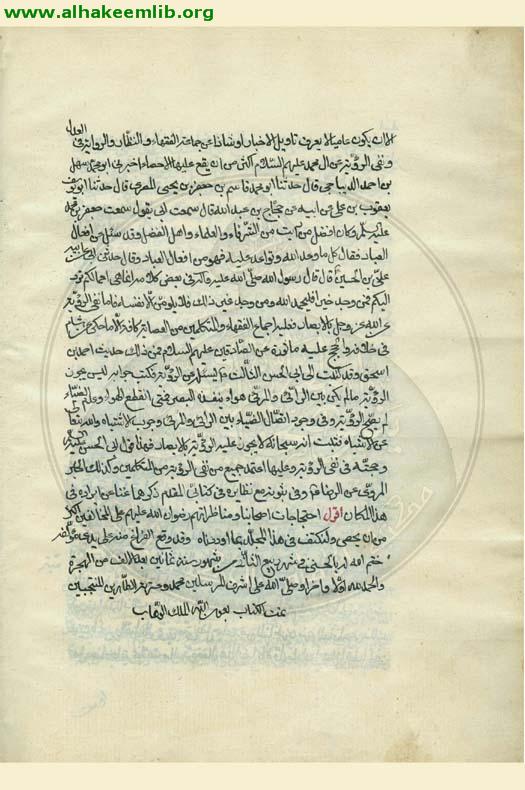 www.alhakeemlib.org
الا ان يكون عاميا لا يعرف تاويل الاخبار او شاذا عن جماعة الفقهاء و النظار و الرواية فى العدل
و نفى الرؤية عن ال محمد عليهم السلام اكثر من ان يقع عليها الاحصاء اخبرنى ابو محمد سهل
بن احمد الديباجى قال حدثنا ابو محمد قاسم بن جعفر بن يحيى المصرى قال حدثنا ابو يوسف
يعقوب بن على عن ابيه عن حجاج بن عبد الله قال سمعت ابى يقول سمعت جعفر بن محمد
و كان افضل من رايت من الشرفاء و العلماء و اهل الفضل و قد سئل عن افعال
العباد فقال كل ما وعد الله و تواعد عليه فهو من افعال العباد و قال حدثنى ابى عن ابيه
على بن الحسين قال قال رسول الله صلى الله عليه و آله فى بعض كلامه انما هى اعمالكم ترد
اليكم فمن وجد خيرا فليحمد الله و من وجد غير ذلك فلا يلومن الا نفسه فاما نفى الرؤية
عن الله عز و جل بالابصار فعليه اجماع الفقهاء و المتكلمين من العصابة كافة الا ما حكى عن هشام
فى خلافه و الحجج عليه ماثورة عن الصادقين عليهم السلام فمن ذلك حديث احمد بن
اسحق و قد كتب الى ابى الحسن الثالث يسئله عن الرؤية فكتب جوابه ليس يجوز
الرؤية ما لم يكن بين الرائى و المرئى هواء ينفذه البصر فمتى انقطع الهواء و عدم الضياء
لم تصح الرؤية و فى وجود اتصال الضياء بين الرائى و المرئى وجوب الاشتباه و الله تعالى
عن الاشتباه فثبت انه سبحانه لا يجوز عليه الرؤية بالابصار فهذا قول ابى الحسن
و حجته فى نفى الرؤية و عليها اعتمد جميع من نفى الرؤية من المتكلمين و كذلك الخبر
المروى عن الرضا و فى ثبوته مع نظايره فى كتابى المقدم ذكرها غنا عن ايراده فى
هذا المكان اقول احتجاجات اصحابنا و مناظراتهم رضوان الله عليهم على المخالفين اكثر
من ان يحصى و لنكتف فى هذا المجلد بما اوردناه و قد وقع الفراغ منه على يدى مؤلفه
ختم الله له بالحسنى فى شهر ربيع الثانى من شهور سنة ثمانين بعد الالف من الهجرة
و الحمد لله اولا و آخرا و صلى الله على اشرف المرسلين محمد و عترته الطاهرين المنتجبين
تمت الكتاب بعون الله الملك الوهاب